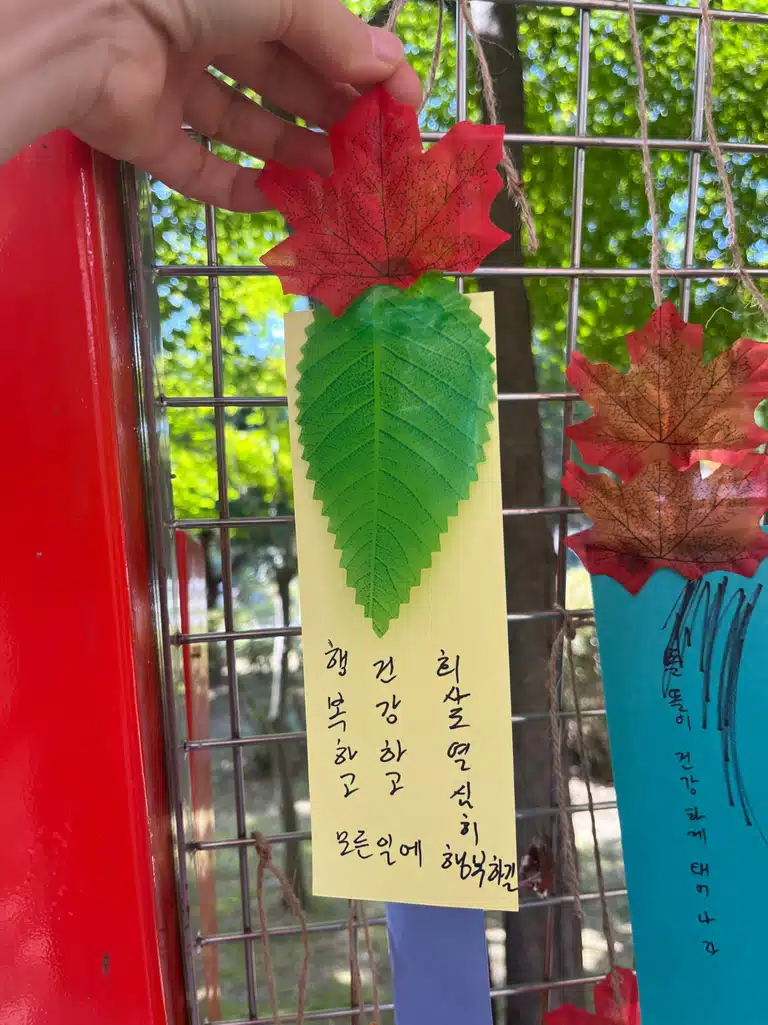 행복하고
건강하고
열심히
모든일에 행복하길
건강하게 태어나라